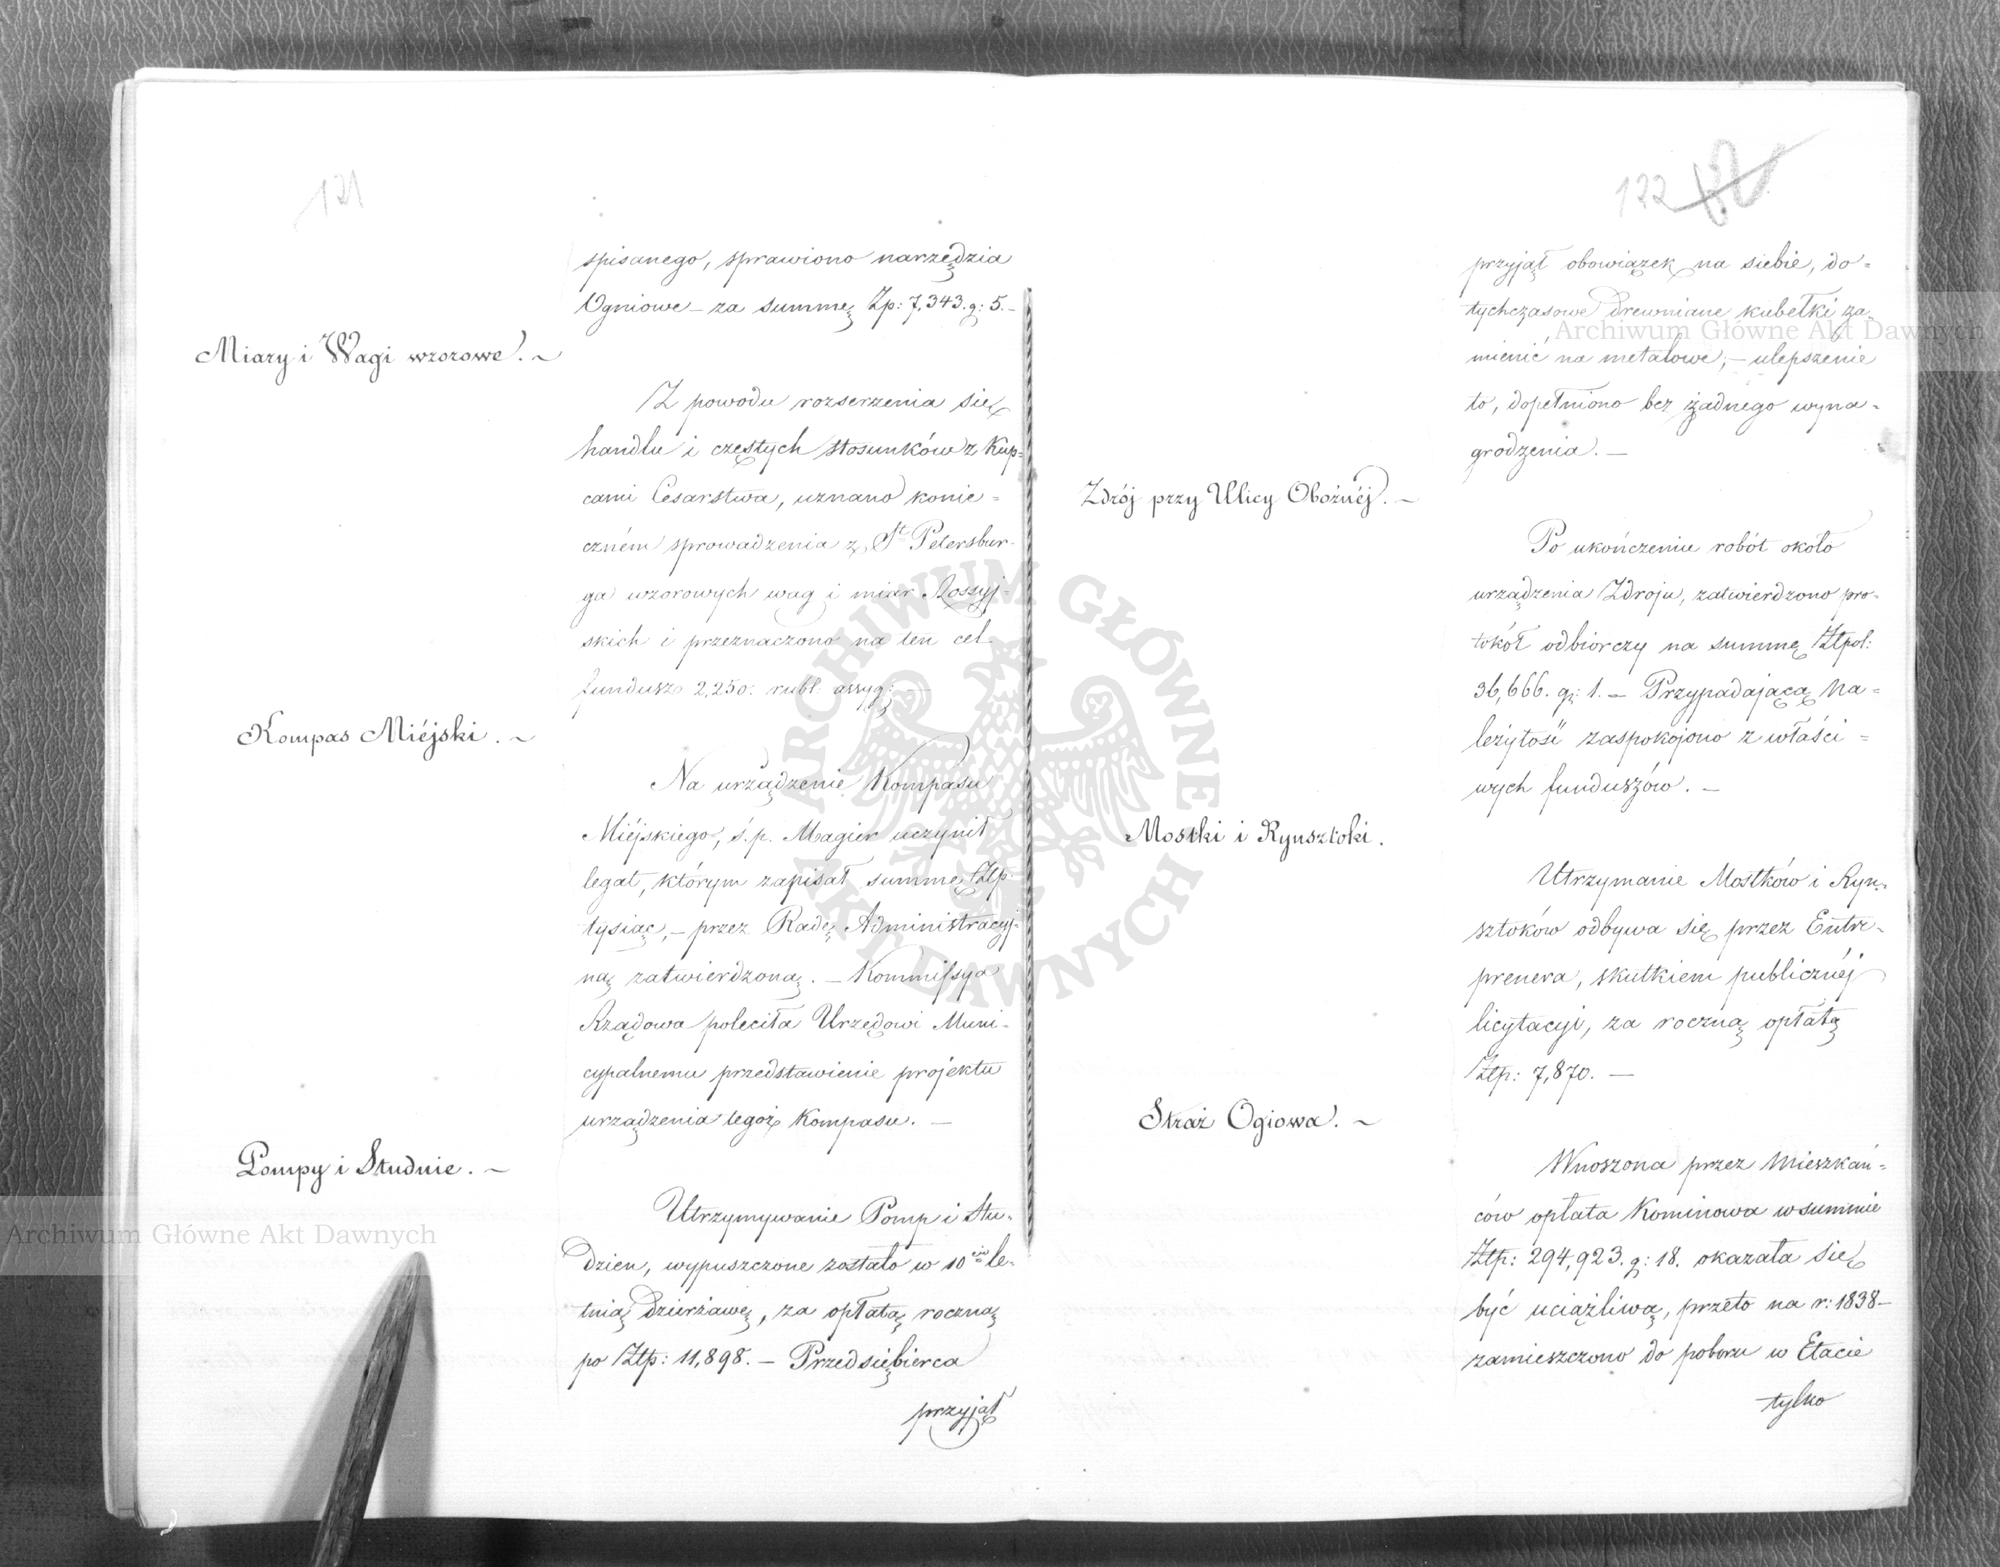 121
spisanego, sprawiono narzędzia
Ogniowe – za summę Zp: 7,343. g: 5. –
Miary i Wagi wzorowe. ~
Z powodu rozserzenia się
handlu i częstych stosunków z Kup=
cami Cesarstwa, uznano konie=
czném sprowadzenia z St Petersbur-
ga wzorowych wag i miar Rossyj-
skich i przeznaczono na ten cel
fundusz 2,250: rubl: assyg: —
Kompas Miéjski. ~
Na urządzenie Kompasu
Miéjskiego, ś.p. Magier uczynił
legat, którym zapisał summę Złp:
tysiąc, – przez Radę Administracyj-
ną zatwierdzoną. – Kommissya
Rządowa poleciła Urzędowi Muni-
cypalnemu przedstawienie projektu
urządzenia tegoż Kompasu. —
Pompy i Studnie. ~
Utrzymywanie Pomp i Stu-
dzien, wypuszczone zostało w 10cio le-
tnią dzierżawę, za opłatą roczną
po Złp: 11,898. – Przedsiębierca
przyjął
122
przyjął obowiązek na siebie, do=
tychczasowe drewniane kubełki za-
mienić na metalowe, – ulepszenie
to, dopełniono bez żadnego wyna=
grodzenia. —
Zdrój przy Ulicy Oboźnéj. ~
Po ukończeniu robót około
urządzenia Zdroju, zatwierdzono pro=
tokół odbiorczy na summę Złpol:
36,666. g: 1. – Przypadającą Na=
leżytość zaspokojono z właści=
wych funduszów. —
Mostki i Rynsztoki.
Utrzymanie Mostków i Ryn-
sztoków odbywa się przez Entre-
prenera, skutkiem publicznéj
licytacyi, za roczną opłatą
Złp: 7,870. —
Straż Ogiowa. ~
Wnoszona przez Mieszkań=
ców opłata Kominowa w summie
Złp: 294,923. g: 18. okazała się
być uciążliwą, przeto na r: 1838 –
zamieszczono do poboru w Etacie
tylko
Archiwum Główne Akt Dawnych
Archiwum Główne Akt Dawnych
ARCHIWUM GŁÓWNE AKT DAWNYCH